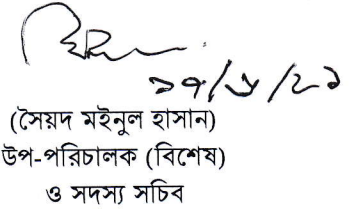 (সৈয়দ মইনুল হাসান)
উপ-পরিচালক (বিশেষ)
ও সদস্য সচিব